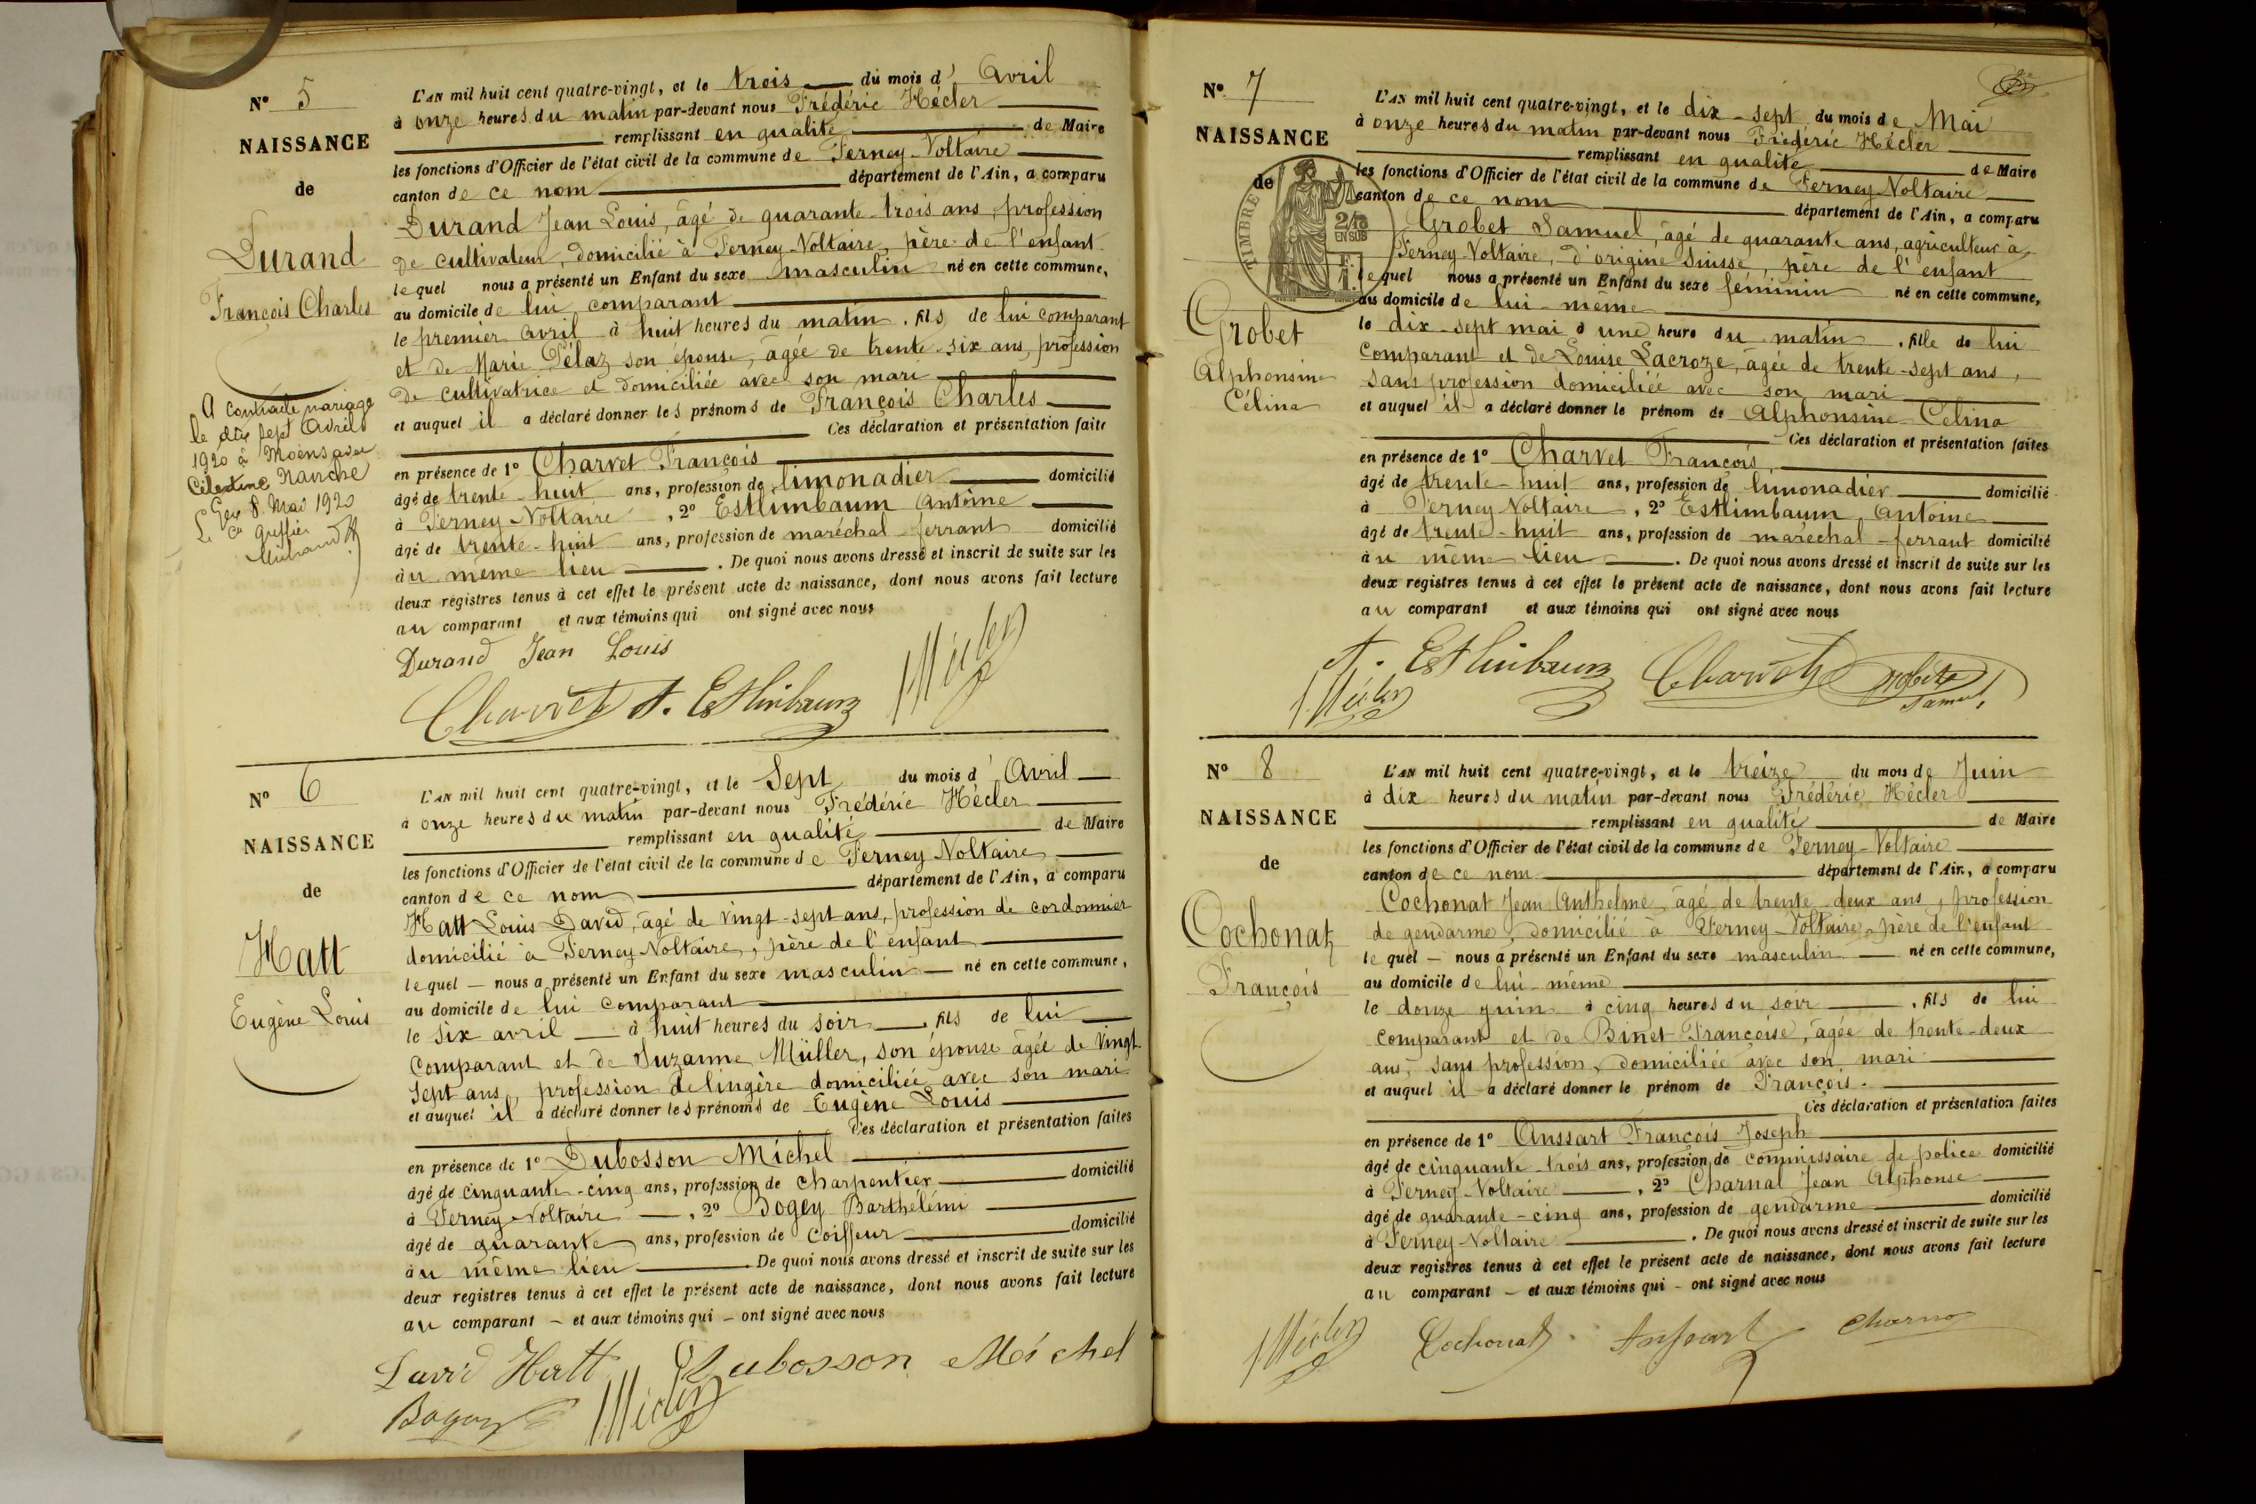 N° 5
NAISSANCE
de
Durand
François Charles
A contracté mariage
le dix sept Avril
1920 à Moëns avec
Célestine
Gex 8 Mai 1920
greffier
L'AN mil huit cent quatre-vingt, et le trois du mois d'Avril
à onze heures du matin par-devant nous Frédéric Hécler
remplissant en qualité de Maire
les fonctions d'Officier de l'état civil de la commune de Ferney-Voltaire
canton de ce nom département de l'Ain, a comparu
Durand Jean Louis, âgé de quarante-trois ans, profession
de cultivateur, domicilié à Ferney-Voltaire, père de l'enfant
lequel nous a présenté un Enfant du sexe masculin né en cette commune,
au domicile de lui comparant
le premier avril à huit heures du matin, fils de lui comparant
et de Marie Pélaz son épouse, âgée de trente-six ans, profession
de cultivatrice et domiciliée avec son mari
et auquel il a déclaré donner les prénoms de François Charles
Ces déclaration et présentation faites
en présence de 1° Charvet François
âgé de trente-huit ans, profession de limonadier domicilié
à Ferney-Voltaire, 2° Esthimbaum Antoine
âgé de trente-huit ans, profession de maréchal ferrant domicilié
au même lieu. De quoi nous avons dressé et inscrit de suite sur les
deux registres tenus à cet effet le présent acte de naissance, dont nous avons fait lecture
au comparant et aux témoins qui ont signé avec nous
Durand Jean Louis
Charvet A. Esthimbaum Hécler
N° 6
NAISSANCE
de
Hatt
Eugène Louis
L'AN mil huit cent quatre-vingt, et le Sept du mois d'Avril
à onze heures du matin par-devant nous Frédéric Hécler
remplissant en qualité de Maire
les fonctions d'Officier de l'état civil de la commune de Ferney Voltaire
canton de ce nom département de l'Ain, a comparu
Hatt Louis David, âgé de vingt-sept ans, profession de cordonnier
domicilié à Ferney-Voltaire, père de l'enfant
lequel — nous a présenté un Enfant du sexe masculin — né en cette commune,
au domicile de lui comparant
le six avril — à huit heures du soir, fils de lui
comparant et de Suzanne Müller, son épouse âgée de vingt
sept ans, profession de lingère domiciliée avec son mari
et auquel il a déclaré donner les prénoms de Eugène Louis
Ces déclaration et présentation faites
en présence de 1° Dubosson Michel
âgé de cinquante-cinq ans, profession de charpentier domicilié
à Ferney-Voltaire, 2° Bogey Barthélémi
âgé de quarante ans, profession de coiffeur domicilié
au même lieu De quoi nous avons dressé et inscrit de suite sur les
deux registres tenus à cet effet le présent acte de naissance, dont nous avons fait lecture
au comparant — et aux témoins qui — ont signé avec nous
David Hatt Dubosson Michel
Bogey Hécler
N° 7
NAISSANCE
de
TIMBRE
2/10
EN SUS
Grobet
Alphonsine
Célina
L'AN mil huit cent quatre-vingt, et le dix-sept du mois de Mai
à onze heures du matin par-devant nous Frédéric Hécler
remplissant en qualité de Maire
les fonctions d'Officier de l'état civil de la commune de Ferney-Voltaire
canton de ce nom département de l'Ain, a comparu
Grobet Samuel, âgé de quarante ans, agriculteur à
Ferney-Voltaire, d'origine Suisse, père de l'enfant
lequel nous a présenté un Enfant du sexe féminin né en cette commune,
au domicile de lui-même
le dix-sept mai à une heure du matin, fille de lui
comparant et de Louise Lacroze, âgée de trente-sept ans,
sans profession domiciliée avec son mari
et auquel il a déclaré donner le prénom de Alphonsine Célina
Ces déclaration et présentation faites
en présence de 1° Charvet François,
âgé de trente-huit ans, profession de limonadier domicilié
à Ferney Voltaire, 2° Esthimbaum Antoine
âgé de trente-huit ans, profession de maréchal-ferrant domicilié
au même lieu. De quoi nous avons dressé et inscrit de suite sur les
deux registres tenus à cet effet le présent acte de naissance, dont nous avons fait lecture
au comparant et aux témoins qui ont signé avec nous
A. Esthimbaum Charvet Grobet
Hécler Samuel
N° 8
NAISSANCE
de
Cochonat
François
L'AN mil huit cent quatre-vingt, et le treize du mois de Juin
à dix heures du matin par-devant nous Frédéric Hécler
remplissant en qualité de Maire
les fonctions d'Officier de l'état civil de la commune de Ferney-Voltaire
canton de ce nom département de l'Ain, a comparu
Cochonat Jean Anthelme, âgé de trente-deux ans, profession
de gendarme, domicilié à Ferney-Voltaire, père de l'enfant
lequel — nous a présenté un Enfant du sexe masculin — né en cette commune,
au domicile de lui-même
le douze juin à cinq heures du soir, fils de lui
comparant et de Binet Françoise, âgée de trente-deux
ans, sans profession, domiciliée avec son mari
et auquel il a déclaré donner le prénom de François.
Ces déclaration et présentation faites
en présence de 1° Anssart François Joseph
âgé de cinquante-trois ans, profession de commissaire de police domicilié
à Ferney-Voltaire, 2° Charnal Jean Alphonse
âgé de quarante-cinq ans, profession de gendarme domicilié
à Ferney-Voltaire. De quoi nous avons dressé et inscrit de suite sur les
deux registres tenus à cet effet le présent acte de naissance, dont nous avons fait lecture
au comparant — et aux témoins qui — ont signé avec nous
Hécler Cochonat Anssart Charnal